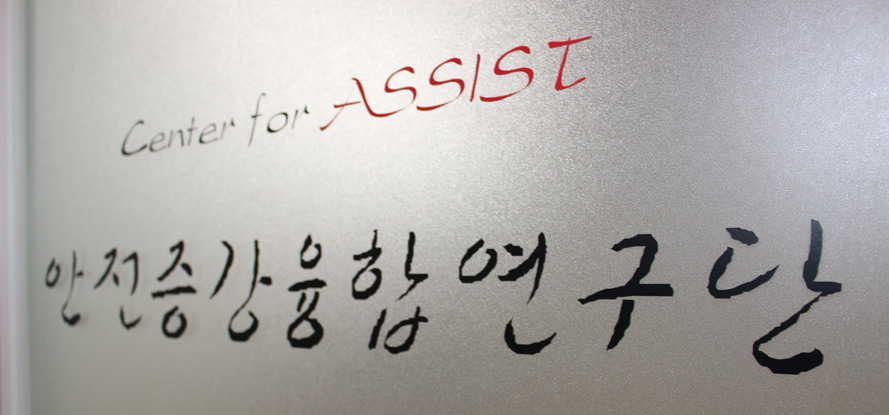 Center for ASSIST
안전증강융합연구단